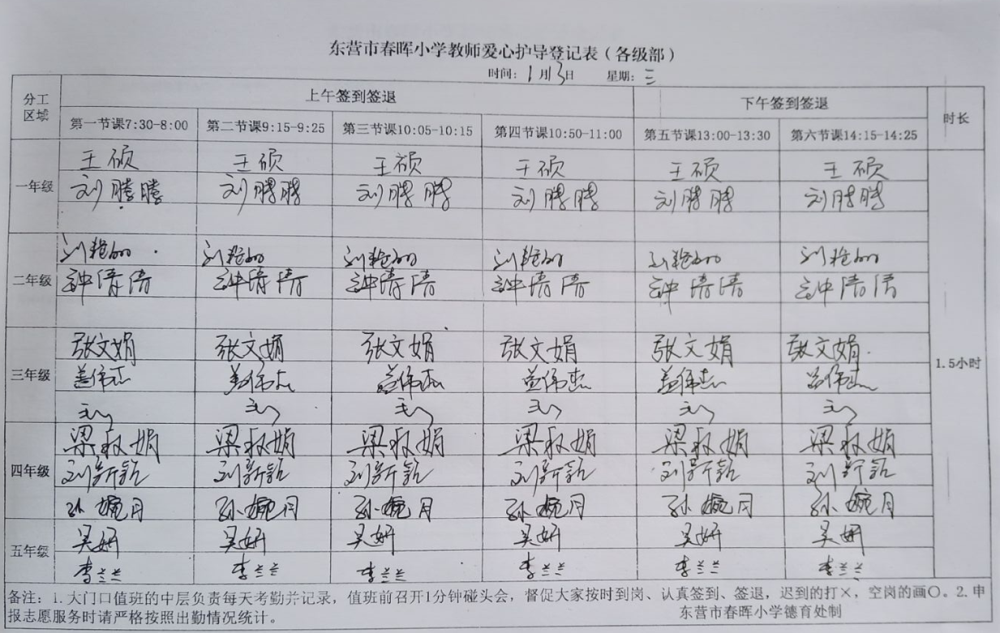 东营市春晖小学教师爱心护导登记表（各级部）
时间：1月3日 星期：三
分工区域 上午签到签退 下午签到签退 时长
第一节课7:30-8:00 第二节课9:15-9:25 第三节课10:05-10:15 第四节课10:50-11:00 第五节课13:00-13:30 第六节课14:15-14:25
王硕 王硕 王硕 王硕 王硕 王硕
一年级 刘腾腾 刘腾腾 刘腾腾 刘腾腾 刘腾腾 刘腾腾
刘艳 刘艳 刘艳 刘艳 刘艳 刘艳
二年级 钟倩倩 钟倩倩 钟倩倩 钟倩倩 钟倩倩 钟倩倩
张文娟 张文娟 张文娟 张文娟 张文娟 张文娟
三年级 盖伟志 盖伟志 盖伟志 盖伟志 盖伟志 盖伟志 1.5小时
梁秋娟 梁秋娟 梁秋娟 梁秋娟 梁秋娟 梁秋娟
四年级 刘新 刘新 刘新 刘新 刘新 刘新
孙婉月 孙婉月 孙婉月 孙婉月 孙婉月 孙婉月
五年级 吴妍 吴妍 吴妍 吴妍 吴妍 吴妍
李兰兰 李兰兰 李兰兰 李兰兰 李兰兰 李兰兰
备注：1.大门口值班的中层负责每天考勤并记录，值班前召开1分钟碰头会，督促大家按时到岗、认真签到、签退，迟到的打×，空岗的画〇。2.申
报志愿服务时请严格按照出勤情况统计。 东营市春晖小学德育处制